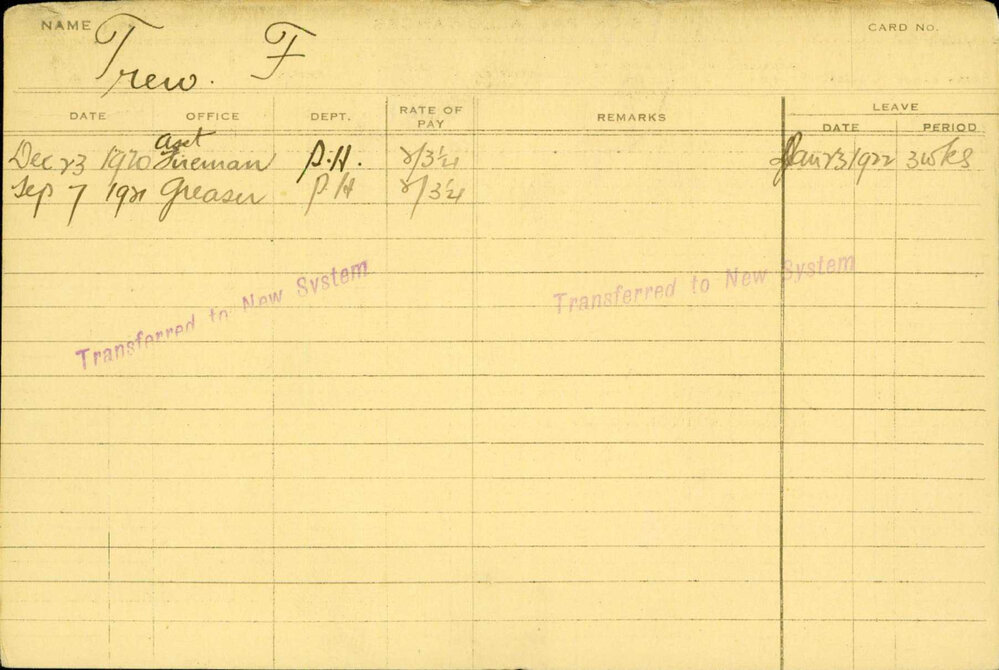 NAME Trew. F CARD No.
DATE OFFICE DEPT. RATE OF PAY REMARKS LEAVE
DATE PERIOD
Dec 23 1920 Asst Fireman P.H. 2/3¼ Jan 23 1922 3 wks
Sep 7 1921 Greaser P.H 2/3¼
Transferred to New System
Transferred to New System